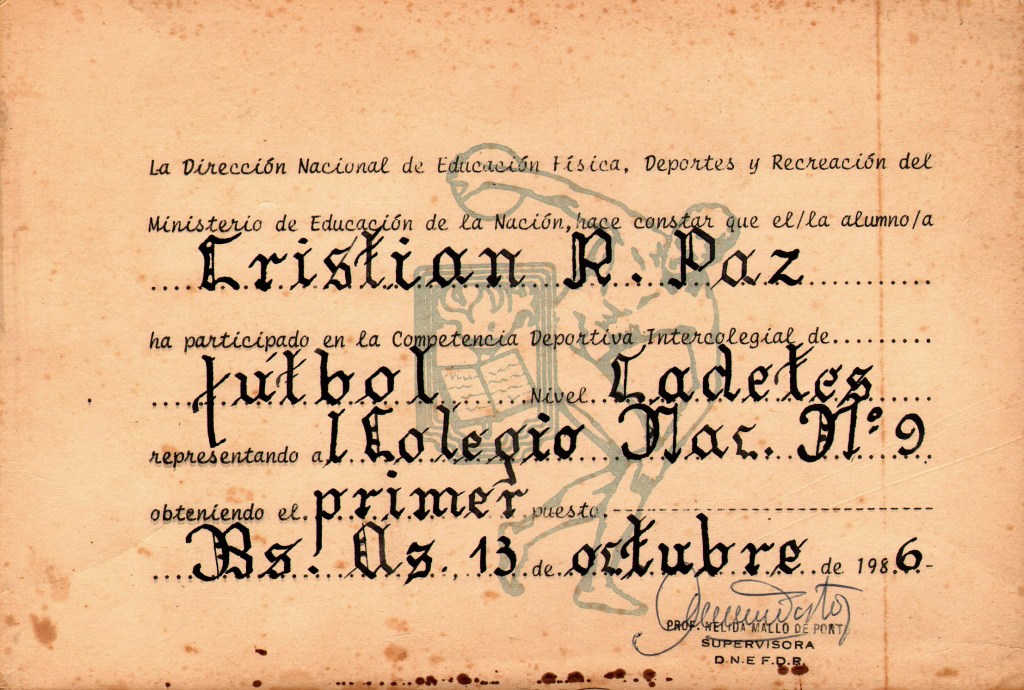 La Dirección Nacional de Educación Física, Deportes y Recreación del
Ministerio de Educación de la Nación, hace constar que el/la alumno/a
Cristian R. Paz
ha participado en la Competencia Deportiva Intercolegial de
fútbol Nivel Cadetes
representando al Colegio Nac. Nº 9
obteniendo el primer puesto.
Bs. As., 13 de octubre de 1986-
PROF. NELIDA MALLO DE PORTO
SUPERVISORA
D.N.E.F.D.R.